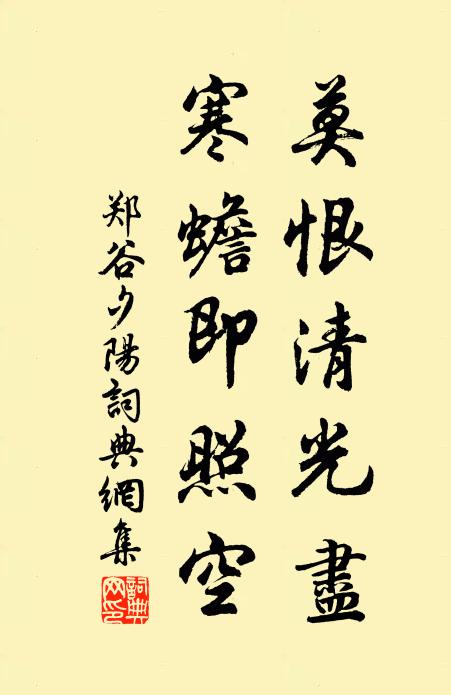 莫恨清光盡
寒蟾即照空
郑谷夕陽詞典網集
詞典网印